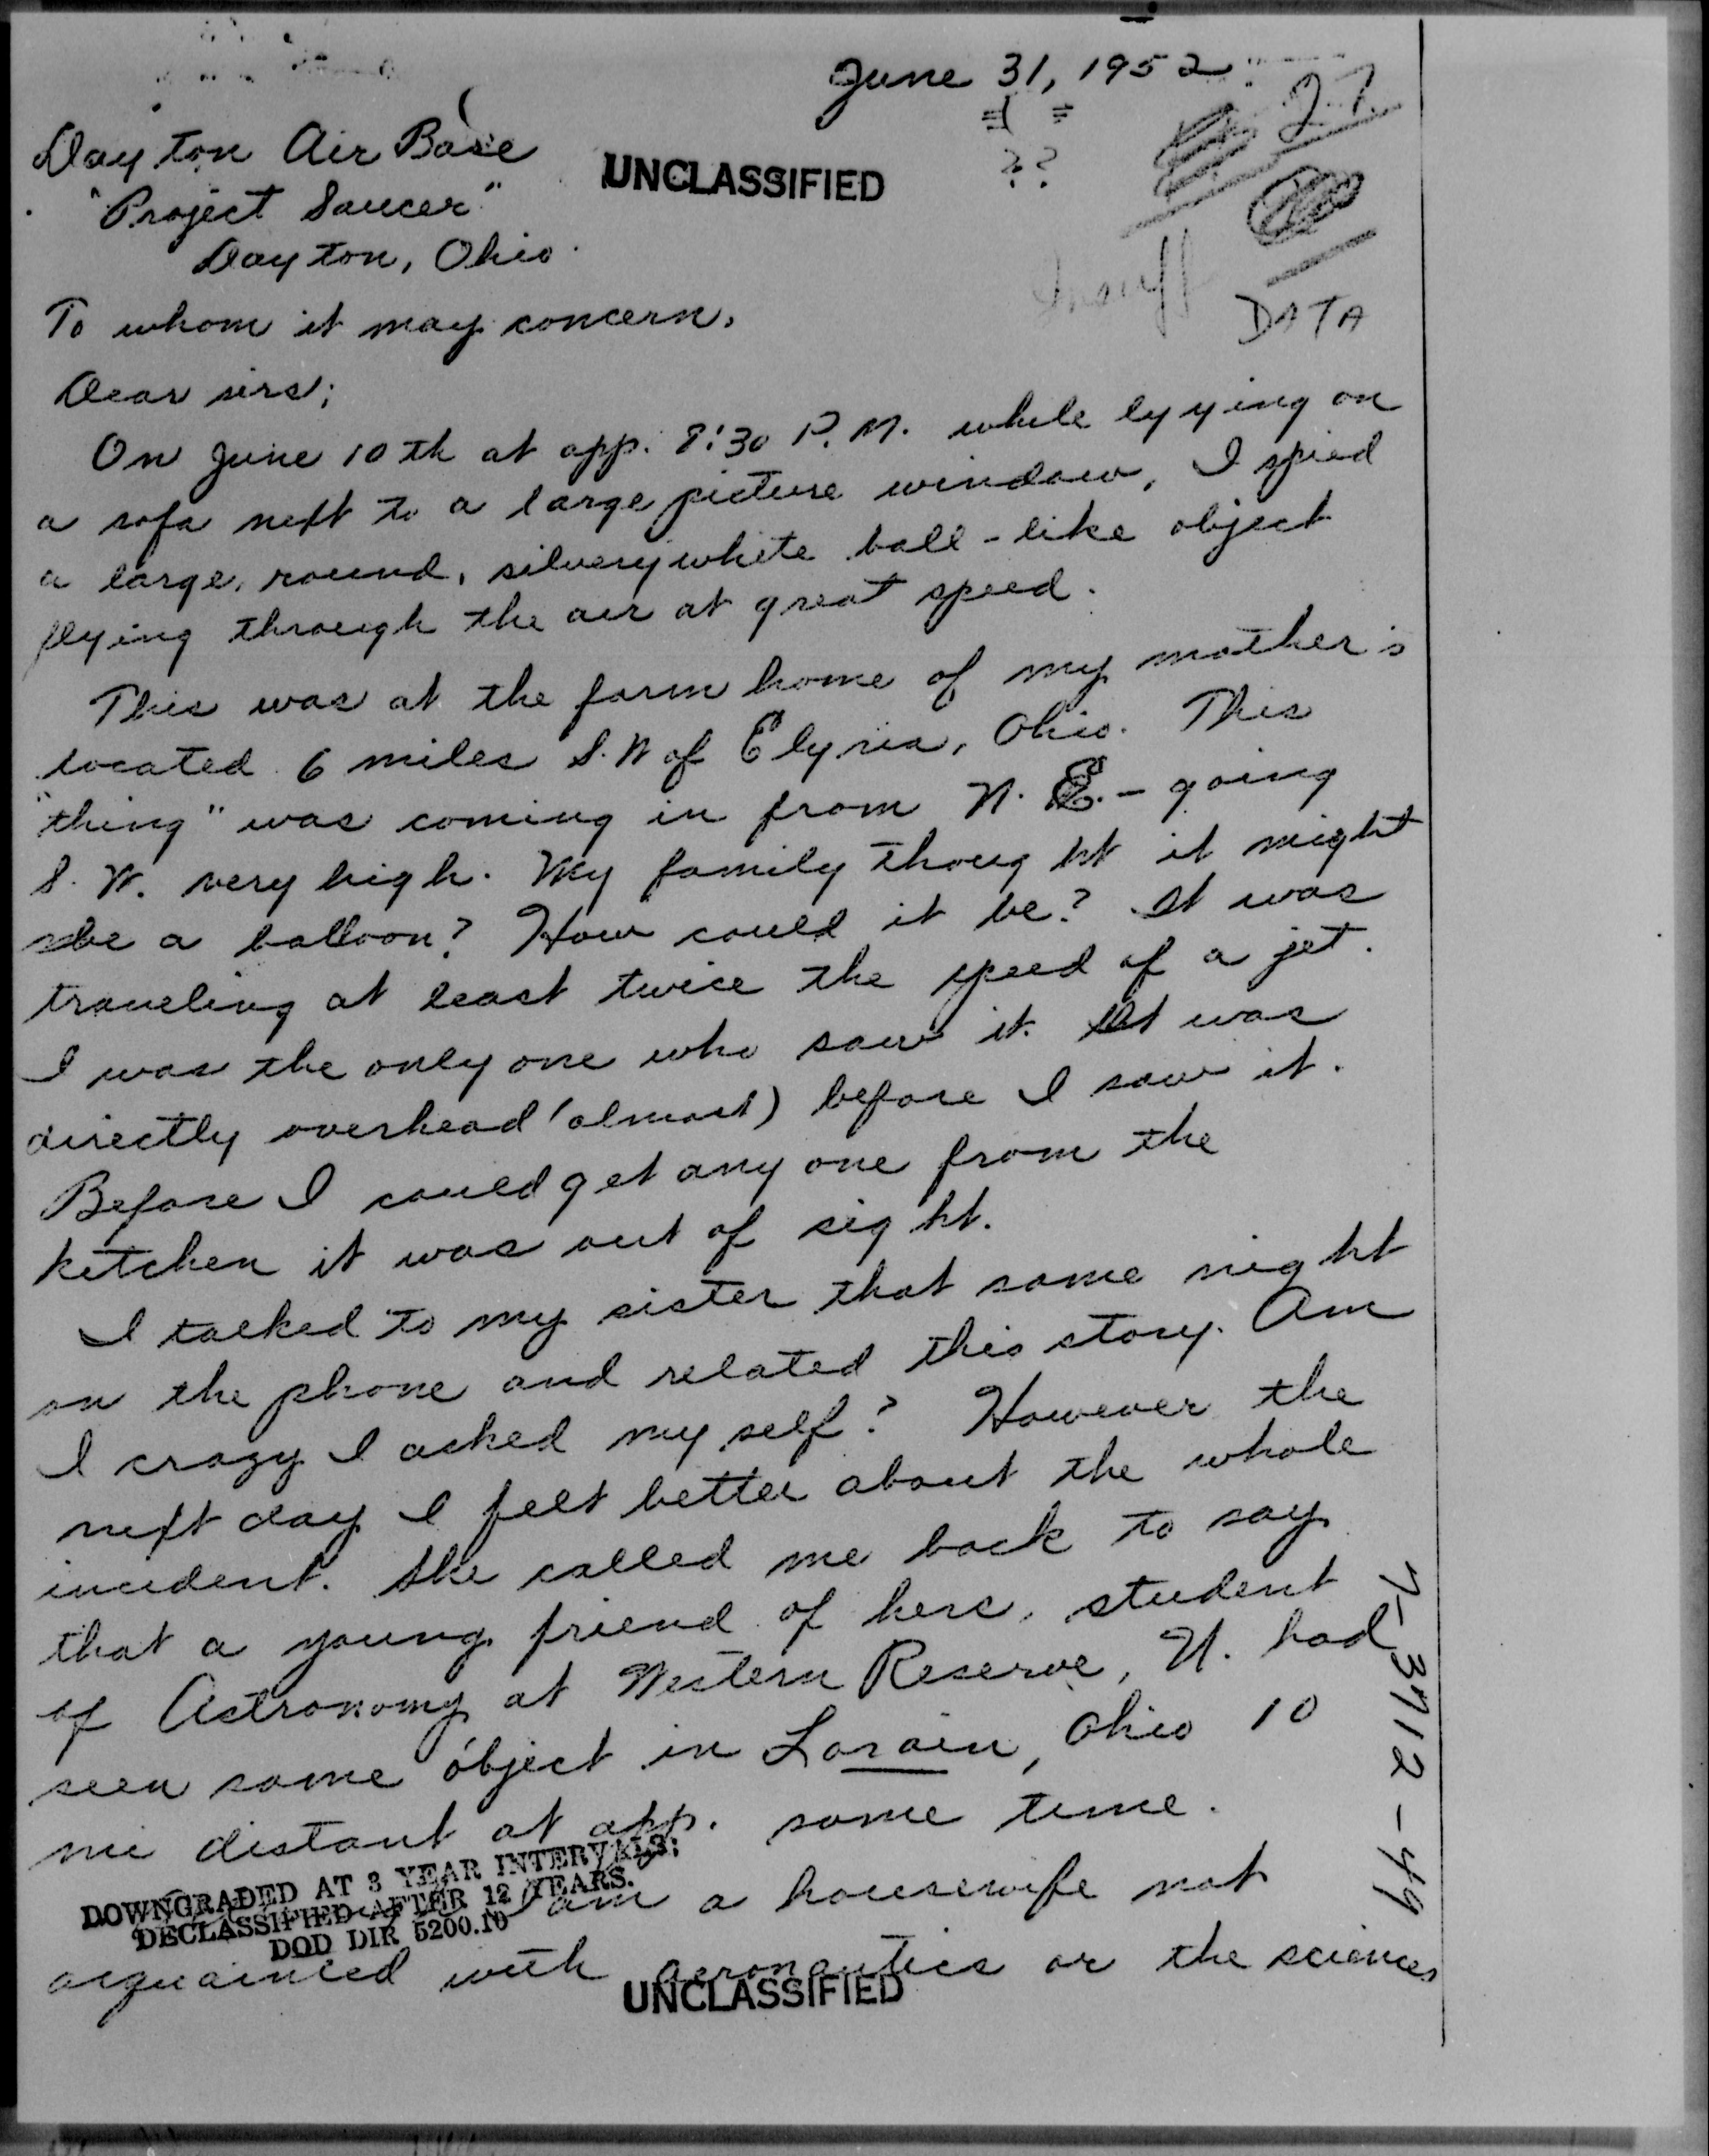 June 31, 1952
??
27
Dayton Air Base
UNCLASSIFIED
"Project Saucer"
Dayton, Ohio.
Insuff
DATA
To whom it may concern,
Dear sirs;
On June 10th at app. 8:30 P.M. while lyying on
a sofa next to a large picture window, I spied
a large, round, silvery white ball-like object
flying through the air at great speed.
This was at the farm home of my mother's
located 6 miles S.W of Elyria, Ohio. This
"thing" was coming in from N.E. - going
S.W. very high. My family thought it might
be a balloon? How could it be? It was
traveling at least twice the speed of a jet.
I was the only one who saw it. It was
directly overhead (almost) before I saw it.
Before I could get any one from the
kitchen it was out of sight.
I talked to my sister that same night
on the phone and related this story. Am
I crazy I asked my self? However the
next day I felt better about the whole
incident. She called me back to say
that a young friend of hers, student
of Astronomy at Western Reserve, U. had
seen same object in Lorain, Ohio 10
mi distant at app. same time.
DOWNGRADED AT 3 YEAR INTERVALS;
DECLASSIFIED AFTER 12 YEARS.
DOD DIR 5200.10
I am a housewife not
acquainted with aeronautics or the sciences
UNCLASSIFIED
7-3712-49